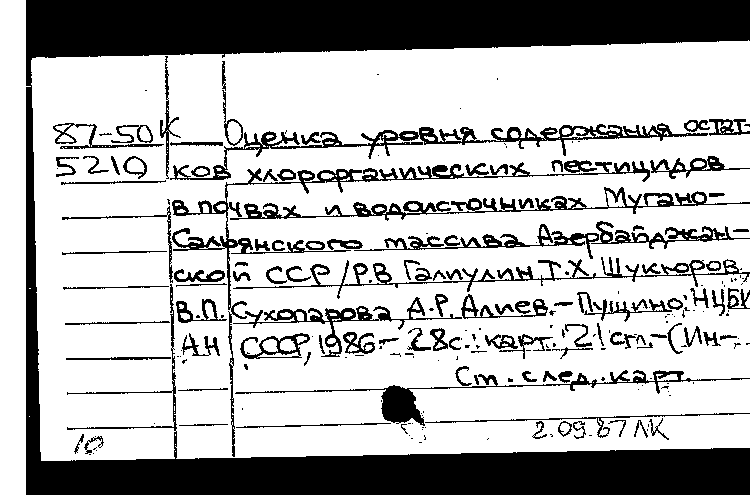 87-50К Оценка уровня содержания остат-
5210 ков хлорорганических пестицидов
в почвах и водоисточниках Мугано-
Сальянского массива Азербайджан-
ской ССР/Р.В. Галиулин, Т.Х. Шукюров,
В.П. Сухопарова, А.Р. Алиев.- Пущино: НЦБИ
АН СССР, 1986.- 28с.: карт.; 21см.-(Ин-
См. след. карт.
10 2.09.87 ЛК